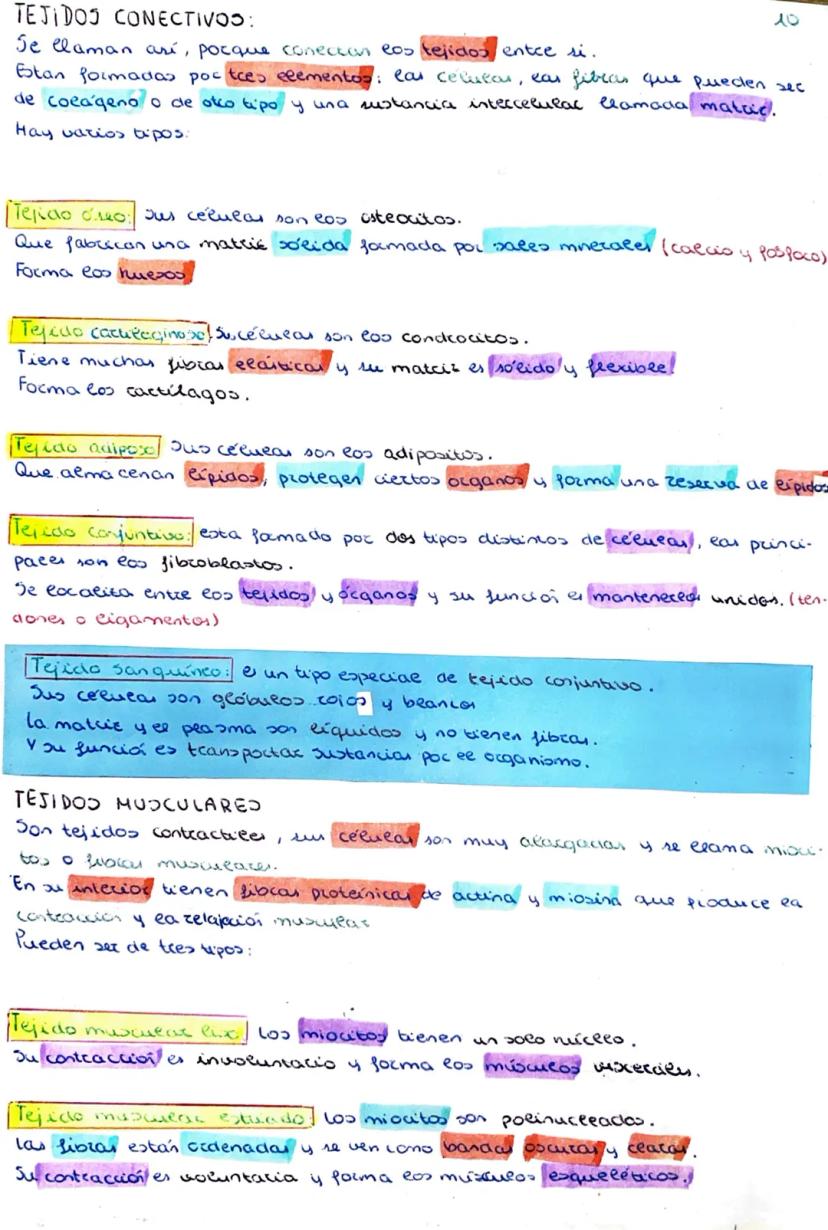 TEJIDOS CONECTIVOS:
10
Se llaman así, porque conectan los tejidos entre si.
Estan formadas por tres elementos: las células, las fibras que pueden ser
de colágeno o de otro tipo y una sustancia intercelular llamada matriz.
Hay varios tipos:
Tejido óseo: Sus células son los osteocitos.
Que fabrican una matriz sólida formada por sales minerales (calcio y fósforo)
Forma los huesos
Tejido cartilaginoso: Su células son los condrocitos.
Tiene muchas fibras elásticas y su matriz es sólido y flexible!
Forma los cartílagos.
Tejido adiposo Sus células son los adipositos.
Que almacenan lípidos, protegen ciertos organos y forma una reserva de lípidos
Tejido conjuntivo: esta formado por dos tipos distintos de células, las princi-
pales son los fibroblastos.
Se localita entre los tejidos y órganos y su función es mantenerlos unidos. (ten-
dones o ligamentos)
Tejido sanguíneo: es un tipo especial de tejido conjuntivo.
Sus células son glóbulos rojos y blancos
La matriz y el plasma son líquidos y no tienen fibras.
Y su función es transportar sustancias por el organismo.
TEJIDOS MUSCULARES
Son tejidos contractiles, sus células son muy alargadas y se llama mioci-
tos o fibras musculares.
En su interior tienen fibras proteínicas de actina y miosina que produce la
contracción y la relajación muscular
Pueden ser de tres tipos:
Tejido muscular liso: Los miocitos tienen un solo núcleo.
Su contracción es involuntario y forma los músculos viscerales.
Tejido muscular estriado: Los miocitos son polinucleados.
Las fibras están ordenadas y se ven como bandas oscuras y claras.
Su contracción es voluntaria y forma los músculos esqueléticos.